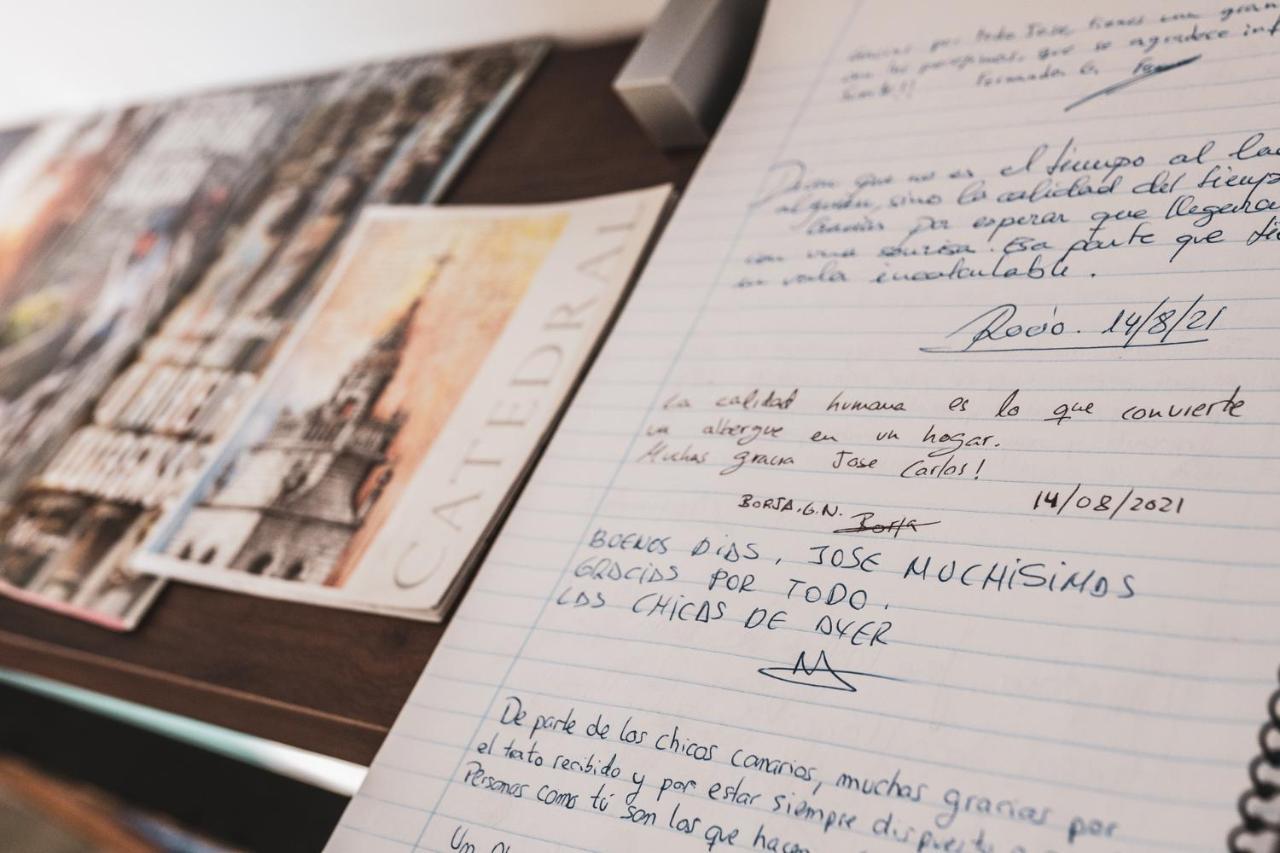 CATEDRAL
por todo Jose, tienes una gran
que se agradece inf
Fernando G.
que no es el tiempo al la
alguien, sino la calidad del tiemp
Gracias por esperar que llegera
con una sonrisa. Esa parte que tie
un valor incalculable.
Rocío. 14/8/21
La calidad humana es lo que convierte
un albergue en un hogar.
Muchas gracia Jose Carlos!
BORJA.G.N. Borja 14/08/2021
BUENOS DIAS, JOSE MUCHíSIMAS
GRACIAS POR TODO.
LAS CHICAS DE AYER
De parte de los chicos canarios, muchas gracias por
el trato recibido y por estar siempre dispuesto a
Personas como tú son las que hacen
Un